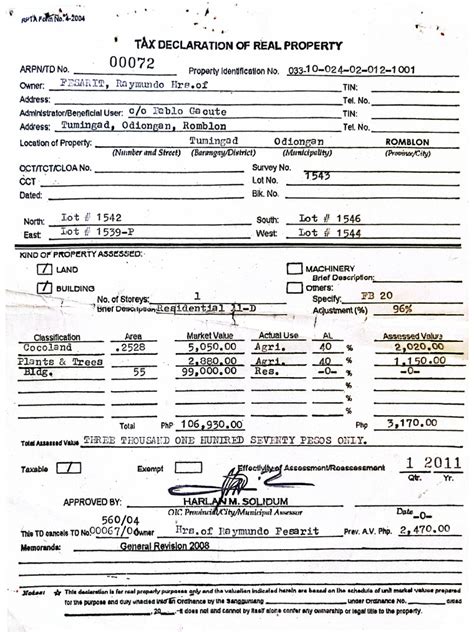 RPTA Form No. 4-2004
TAX DECLARATION OF REAL PROPERTY
ARPN/TD No. 00072 Property Identification No. 033-10-024-02-012-1001
Owner: PESARIT, Raymundo Hrs.of TIN:
Address: Tel. No.
Administrator/Beneficial User: c/o Pablo Gacute TIN:
Address: Tumingad, Odiongan, Romblon Tel. No.
Location of Property: Tumingad Odiongan ROMBLON
(Number and Street) (Barangay/District) (Municipality) (Province/City)
OCT/TCT/CLOA No. Survey No.
CCT Lot No. 1543
Dated: Blk. No.
North: Lot # 1542 South: Lot # 1546
East: Lot # 1539-P West: Lot # 1544
KIND OF PROPERTY ASSESSED:
/ LAND MACHINERY
Brief Description:
/ BUILDING Others:
No. of Storeys: 1 Specify: FB 20
Brief Description: Residential 11-D Adjustment (%) 96%
Classification Area Market Value Actual Use AL Assessed Value
Cocoland .2528 5,050.00 Agri. 40 % 2,020.00
Plants & Trees 2,880.00 Agri. 40 % 1,150.00
Bldg. 55 99,000.00 Res. -0- % -0-
%
%
Total PhP 106,930.00 PhP 3,170.00
Total Assessed Value THREE THOUSAND ONE HUNDRED SEVENTY PESOS ONLY.
Taxable / Exempt Effectivity of Assessment/Reassessment 1 2011
Qtr. Yr.
APPROVED BY: HARLAN M. SOLIDUM
OIC Provincial/City/Municipal Assessor Date
560/04 -0-
This TD cancels TD No. 00067/04 Owner Hrs.of Raymundo Pesarit Prev. A.V. Php. 2,470.00
Memoranda: General Revision 2008
Notes: ☆ This declaration is for real property purposes only and the valuation indicated herein are based on the schedule of unit market values prepared
for the purpose and duly enacted into an Ordinance by the Sanggunian under Ordinance No. dated
, 20 . It does not and cannot by itself alone confer any ownership or legal title to the property.